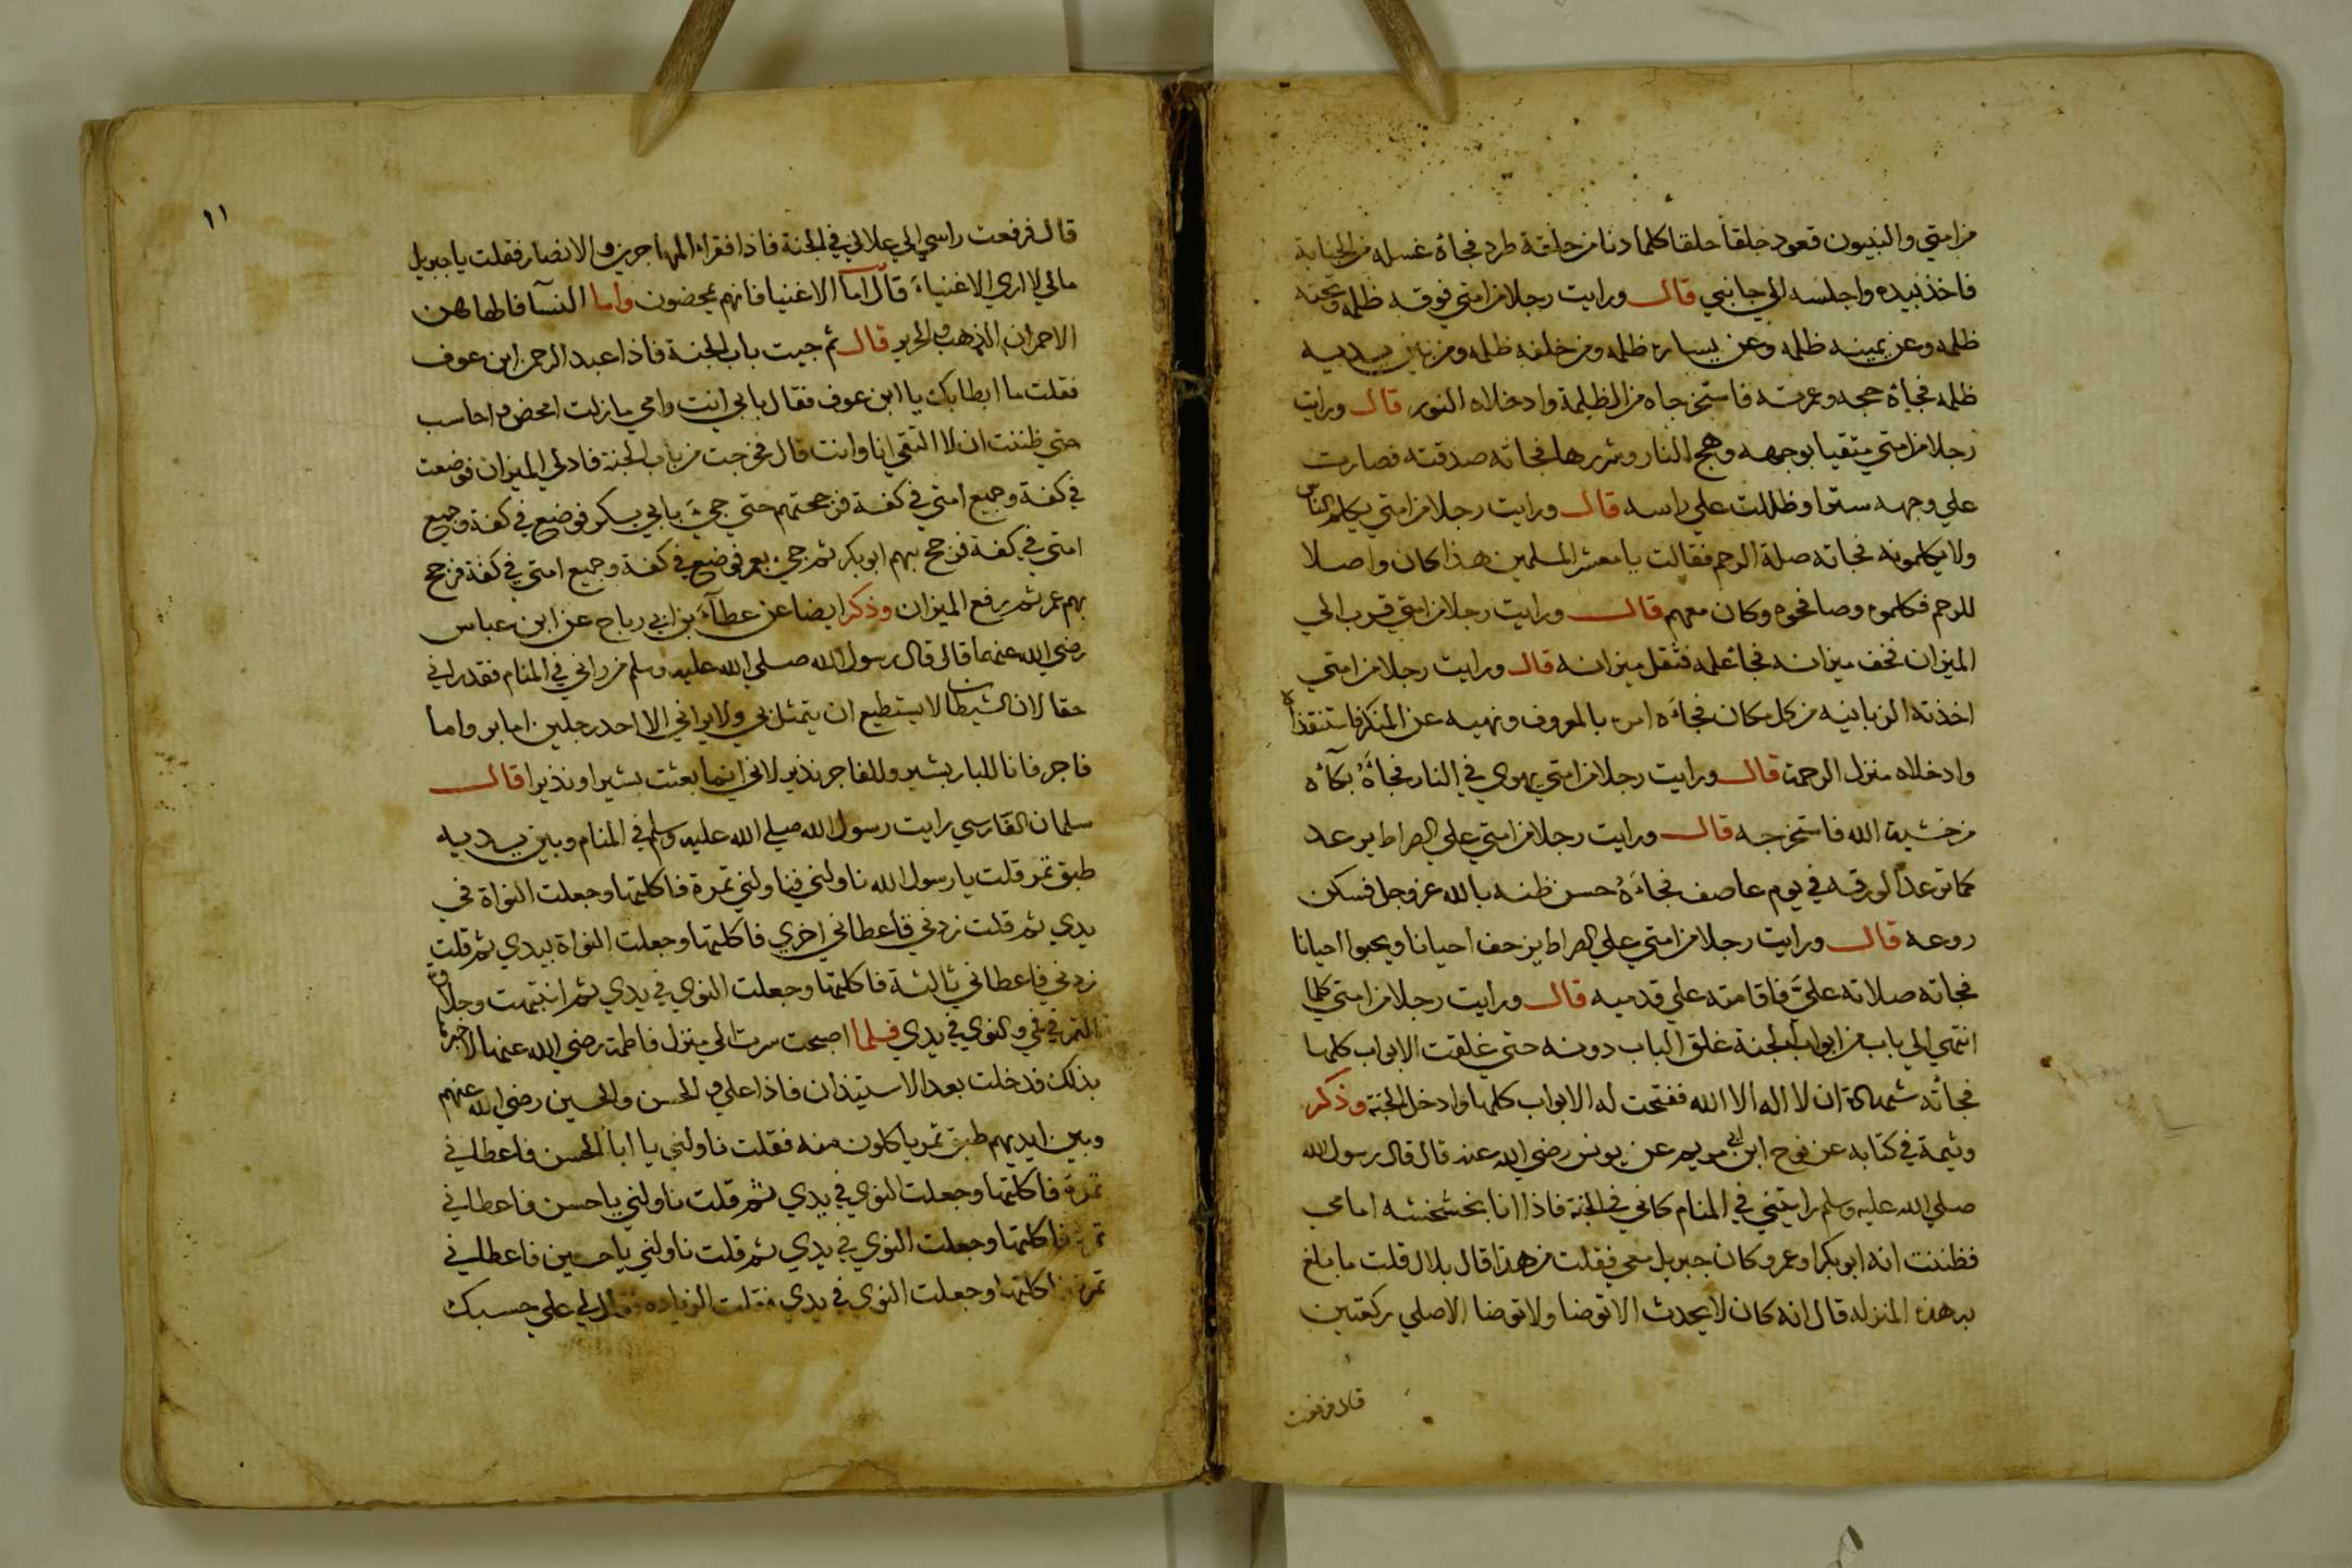 من امتي والنبيون قعود حلقا حلقا كلما دنا من حلقة طرد فجاة غسله من الجنابة
فاخذ بيده واجلسه الي جانبي قال ورايت رجلا من امتي فوقه ظلمه وتحته
ظلمه وعن يمينه ظلمه وعن يساره ظلمه ومن خلفه ظلمه ومن بين يديه
ظلمه فجاة حجه وعمرته فاستخرجاه من الظلمة وادخلاه النور قال ورايت
رجلا من امتي يتقيا بوجهه وهج النار وشررها فجاته صدقته فصارت
علي وجهه سترا وظللت علي راسه قال ورايت رجلا من امتي يكلم الناس
ولا يكلمونه فجاته صلة الرحم فقالت يا معشر المسلمين هذا كان واصلا
للرحم فكلموه وصافحوه وكان معهم قال ورايت رجلا من امتي قرب الي
الميزان فخف ميزانه فجا علمه فثقل ميزانه قال ورايت رجلا من امتي
اخذته الزبانيه من كل مكان فجاءه امره بالمعروف ونهيه عن المنكر فاستنقذاه
وادخلاه منزل الرحمة قال ورايت رجلا من امتي يهوي في النار فجاءه بكآءه
من خشية الله فاستخرجه قال ورايت رجلا من امتي علي الصراط يرعد
كما ترعد الورقه في يوم عاصف فجاءه حسن ظنه بالله عز وجل فسكن
روعه قال ورايت رجلا من امتي علي الصراط يزحف احيانا ويحبوا احيانا
فجاته صلاته عليَّ فاقامته علي قدميه قال ورايت رجلا من امتي كلما
انتهي الي باب من ابواب الجنة غلق الباب دونه حتي غلقت الابواب كلها
فجاته شهادة ان لا اله الا الله ففتحت له الابواب كلها وادخل الجنة وذكر
وثيمة في كتابه عن نوح ابن ابي مريم عن يونس رضي الله عنه قال قال رسول الله
صلي الله عليه وسلم رايتني في المنام كاني في الجنة فاذا انا بخشخشه امامي
فظننت انه ابو بكر او عمر وكان جبريل معي فقلت من هذا قال بلال قلت ما بلغ
به هذه المنزله قال انه كان لا يحدث الا توضا ولا توضا الا صلي ركعتين
قال فرفعت
١١
قال فرفعت راسي الي علالي في الجنة فاذا فقراء المهاجرين والانصار فقلت يا جبريل
مالي لا اري الاغنياء قال اما الاغنيا فانهم يمحضون واما النسآ فالهاهن
الاحمران الذهب والحرير قال ثم جيت باب الجنة فاذا عبد الرحمن ابن عوف
فقلت ما ابطا بك يا ابن عوف فقال بابي انت وامي ما زلت امحض واحاسب
حتي ظننت ان لا التقي انا وانت قال فخرجت من باب الجنة فادلي الميزان فوضعت
في كفة وجميع امتي في كفة فرجحتهم حتي جيء بابي بكر فوضع في كفة وجميع
امتي في كفة فرجح بهم ابو بكر ثم جيء بعمر فوضع في كفة وجميع امتي في كفة فرجح
بهم عمر ثم رفع الميزان وذكر ايضا عن عطآء بن ابي رباح عن ابن عباس
رضي الله عنهما قال قال رسول الله صلي الله عليه وسلم من راني في المنام فقد راني
حقا لان الشيطان لا يستطيع ان يتمثل بي ولا يراني الا احد رجلين اما بر واما
فاجر فانا للبار بشير وللفاجر نذير لاني انما بعثت بشيرا ونذيرا قال
سلمان الفارسي رايت رسول الله صلي الله عليه وسلم في المنام وبين يديه
طبق تمر قلت يا رسول الله ناولني فناولني تمرة فاكلتها وجعلت النواة في
يدي ثم قلت زدني فاعطاني اخري فاكلتها وجعلت النواة بيدي ثم قلت
زدني فاعطاني ثالثة فاكلتها وجعلت النوي في يدي ثم انتبهت وحلاوة
التمر في في والنوي في يدي فلما اصبحت سرت الي منزل فاطمة رضي الله عنها لاخبرها
بذلك فدخلت بعد الاستيذان فاذا علي والحسن والحسين رضي الله عنهم
وبين ايديهم طبق تمر ياكلون منه فقلت ناولني يا ابا الحسن فاعطاني
تمرة فاكلتها وجعلت النوي في يدي ثم قلت ناولني يا حسن فاعطاني
تمرة فاكلتها وجعلت النوي في يدي ثم قلت ناولني يا حسين فاعطاني
تمرة فاكلتها وجعلت النوي في يدي فقلت الزياده فقال لي علي حسبك